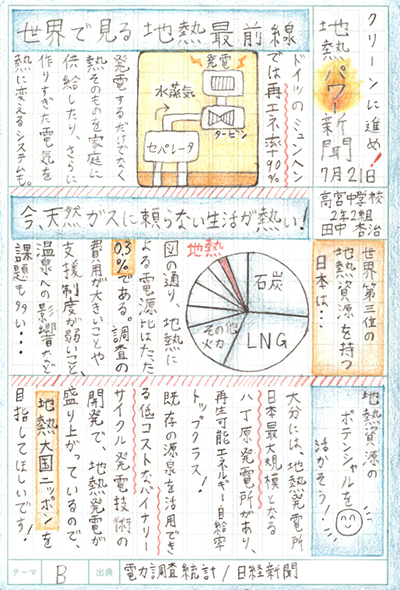 クリーンに進め!
地熱パワー新聞
7月21日
高宮中学校
2年2組
田中杏治
世界で見る地熱最前線
ドイツのミュンヘン
では再エネ率90%
発電
水蒸気
タービン
セパレータ
発電するだけでなく
熱そのものを家庭に
供給したり、さらに
作りすぎた電気を
熱に変えるシステムも。
今、天然ガスに頼らない生活が熱い!
世界第三位の
地熱資源を持つ
日本は・・・
地熱
石炭
LNG
その他
火力
図の通り、地熱に
よる電源比はたった
0.3%である。調査の
費用が大きいことや
支援制度が弱いこと、
温泉への影響など
課題も多い・・・
地熱資源の
ポテンシャルを
活かそう!
大分には、地熱発電所
日本最大規模となる
八丁原発電所があり、
再生可能エネルギー自給率
トップクラス!
既存の源泉を活用でき
る低コストなバイナリー
サイクル発電技術の
開発で、地熱発電が
盛り上がっているので、
地熱大国ニッポンを
目指してほしいです!
テーマ B 出典 電力調査統計/日経新聞